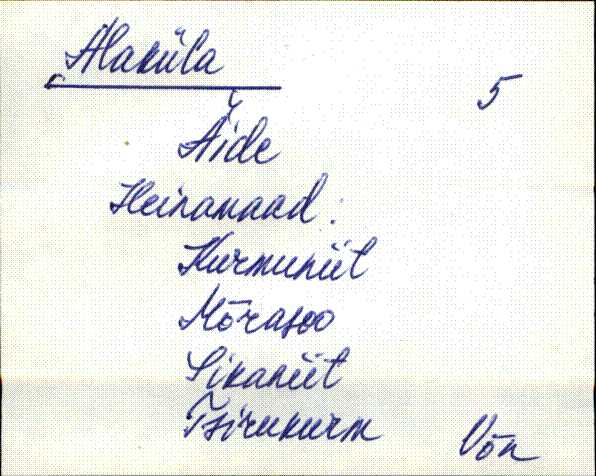 Alaküla
5
Äide
Heinamaad:
Kurmuniit
Mõrasoo
Sikaniit
Tsirukurm
Võn